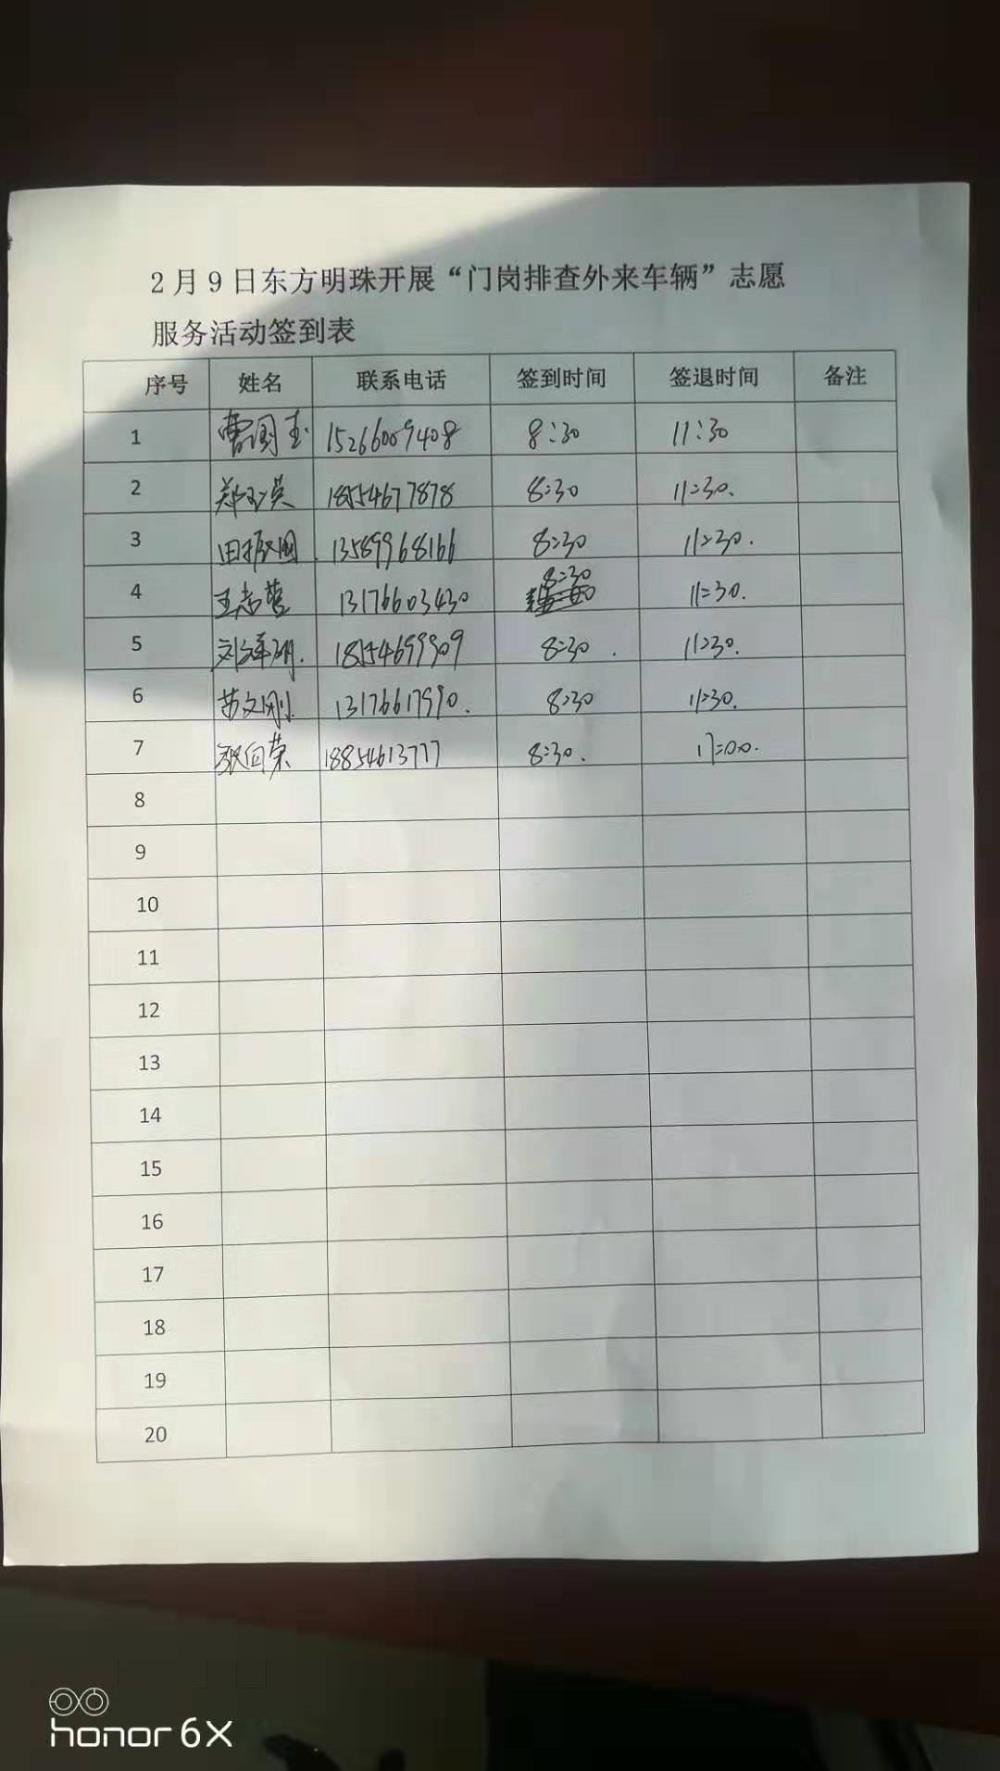 2月9日东方明珠开展“门岗排查外来车辆”志愿
服务活动签到表
序号 姓名 联系电话 签到时间 签退时间 备注
1 曹国玉 15266009408 8:30 11:30
2 郑玉英 18554677878 8:30 11:30.
3 田振国 13589968166 8:30 11:30.
4 王志萱 13176603430 8:30 11:30.
5 18254699909 8:30 11:30.
6 苗文刚 13176617990. 8:30 11:30.
7 张向荣 18854613777 8:30. 17:00.
8
9
10
11
12
13
14
15
16
17
18
19
20
honor 6X